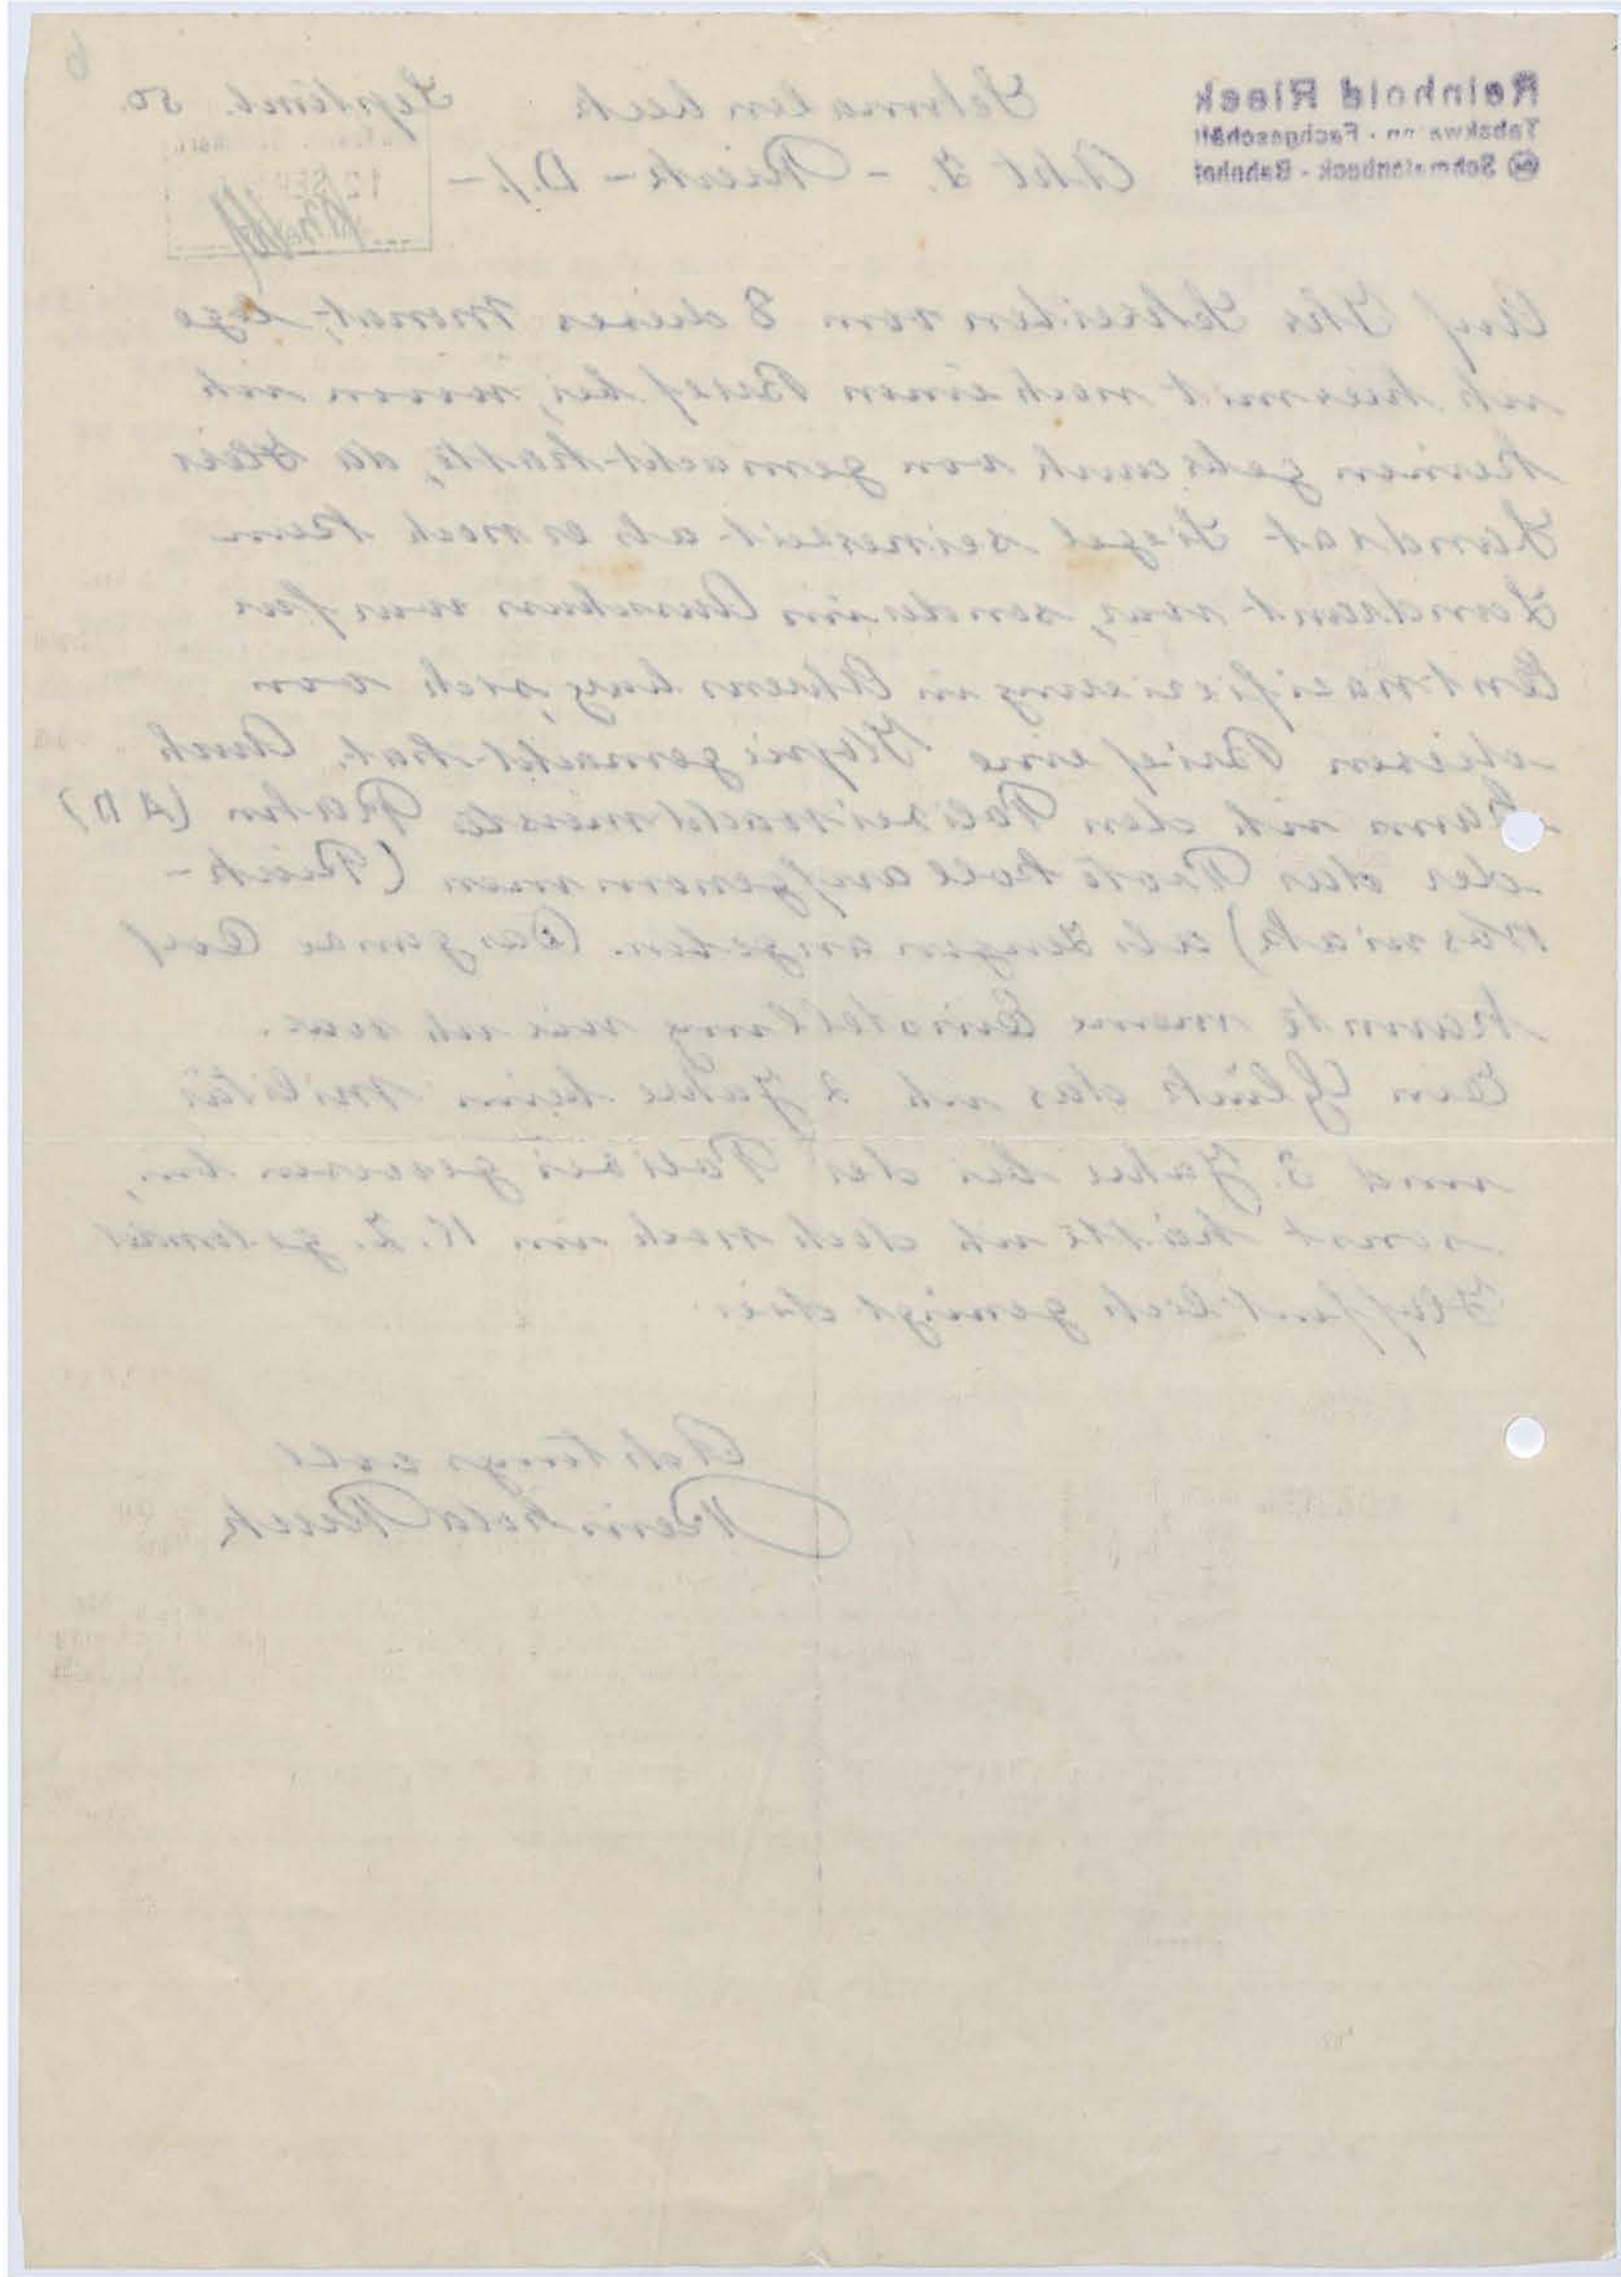 Reinhold Rieck
Tabakwaren - Fachgeschäft
Schmalenbeck - Bahnhof
Schmalenbeck Septemb. 50.
6
12. SEP.
Abt 2. - Rieck - D./. -
Auf Ihr Schreiben vom 8 dieses Monat, lege
ich hiermit noch einen Brief bei, wovon ich
keinen gebrauch von gemacht hatte, da Herr
Landrat Siegel seinerzeit als er noch kein
Landrat war, sondern im Ausschuss war für
Entnazifizierung in Ahrensburg, sich von
diesem Brief eine Kopie gemacht hat. Auch
kann ich den Polizeiwachtmeister Rahn (A D)
der das Protokoll aufgenommen (Rieck -
) als Zeugen angeben. Das ganze Dorf
kannte meine Einstellung wie ich war.
Ein Glück das ich 2 Jahre beim Militär
und 3. Jahre bei der Polizei gewesen bin,
sonst hätte ich doch noch im K. Z. gelandet
Hoffentlich genügt dies.
Achtungsvoll
Reinhold Rieck